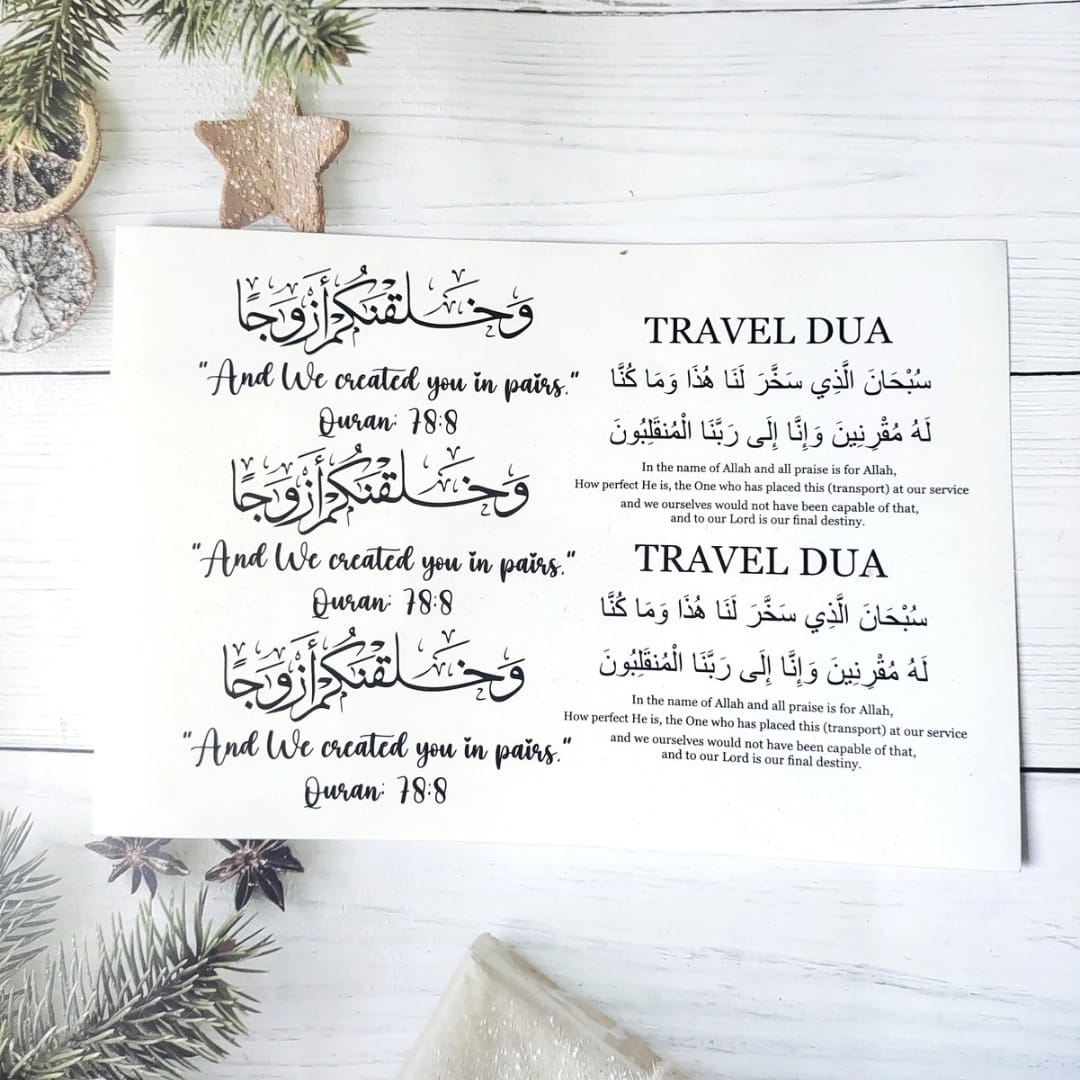 وَخَلَقْنَٰكُمْ أَزْوَٰجًا
"And We created you in pairs."
Quran: 78:8
وَخَلَقْنَٰكُمْ أَزْوَٰجًا
"And We created you in pairs."
Quran: 78:8
وَخَلَقْنَٰكُمْ أَزْوَٰجًا
"And We created you in pairs."
Quran: 78:8
TRAVEL DUA
سُبْحَانَ الَّذِي سَخَّرَ لَنَا هُذَا وَمَا كُنَّا
لَهُ مُقْرِنِينَ وَإِنَّا إِلَى رَبَّنَا الْمُنقَلِبُونَ
In the name of Allah and all praise is for Allah,
How perfect He is, the One who has placed this (transport) at our service
and we ourselves would not have been capable of that,
and to our Lord is our final destiny.
TRAVEL DUA
سُبْحَانَ الَّذِي سَخَّرَ لَنَا هُذَا وَمَا كُنَّا
لَهُ مُقْرِنِينَ وَإِنَّا إِلَى رَبَّنَا الْمُنقَلِبُونَ
In the name of Allah and all praise is for Allah,
How perfect He is, the One who has placed this (transport) at our service
and we ourselves would not have been capable of that,
and to our Lord is our final destiny.